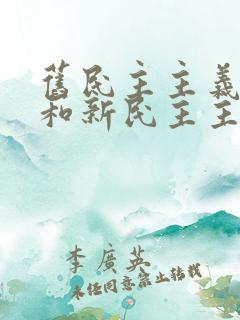 舊民主主義
和新民主主
李廣英
未经同意禁止转载